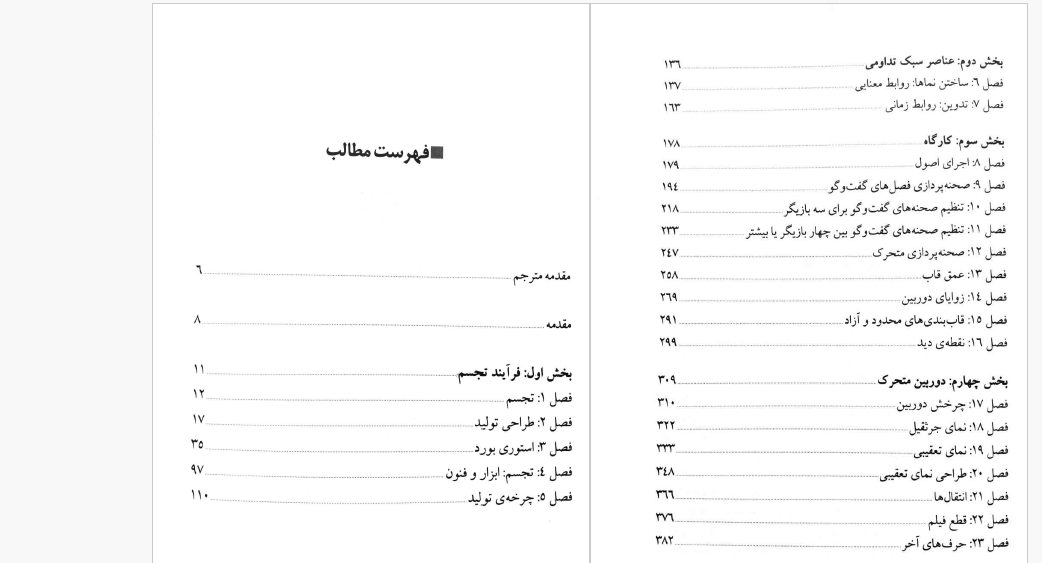 فهرست مطالب
مقدمه مترجم ٦
مقدمه ٨
بخش اول: فرآیند تجسم ١١
فصل ١: تجسم ١٢
فصل ٢: طراحی تولید ١٧
فصل ٣: استوری بورد ٣٥
فصل ٤: تجسم: ابزار و فنون ٩٧
فصل ٥: چرخه‌ی تولید ١١٠
بخش دوم: عناصر سبک تداومی ١٣٦
فصل ٦: ساختن نماها: روابط معنایی ١٣٧
فصل ٧: تدوین: روابط زمانی ١٦٣
بخش سوم: کارگاه ١٧٨
فصل ٨: اجرای اصول ١٧٩
فصل ٩: صحنه‌پردازی فصل‌های گفت‌وگو ١٩٤
فصل ١٠: تنظیم صحنه‌های گفت‌وگو برای سه بازیگر ٢١٨
فصل ١١: تنظیم صحنه‌های گفت‌وگو بین چهار بازیگر یا بیشتر ٢٣٣
فصل ١٢: صحنه‌پردازی متحرک ٢٤٧
فصل ١٣: عمق قاب ٢٥٨
فصل ١٤: زوایای دوربین ٢٦٩
فصل ١٥: قاب‌بندی‌های محدود و آزاد ٢٩١
فصل ١٦: نقطه‌ی دید ٢٩٩
بخش چهارم: دوربین متحرک ٣٠٩
فصل ١٧: چرخش دوربین ٣١٠
فصل ١٨: نمای جرثقیل ٣٢٢
فصل ١٩: نمای تعقیبی ٣٣٣
فصل ٢٠: طراحی نمای تعقیبی ٣٤٨
فصل ٢١: انتقال‌ها ٣٦٦
فصل ٢٢: قطع فیلم ٣٧٦
فصل ٢٣: حرف‌های آخر ٣٨٢